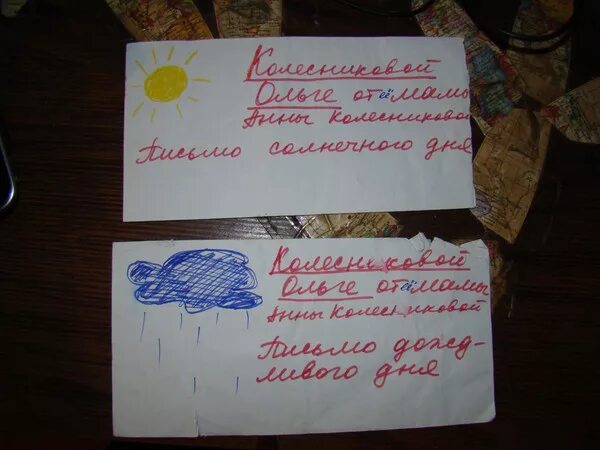 Колесниковой
Ольге от её мамы
Анны Колесниковой
Письмо солнечного дня
Колесниковой
Ольге от её мамы
Анны Колесниковой
Письмо дожд-
ливого дня